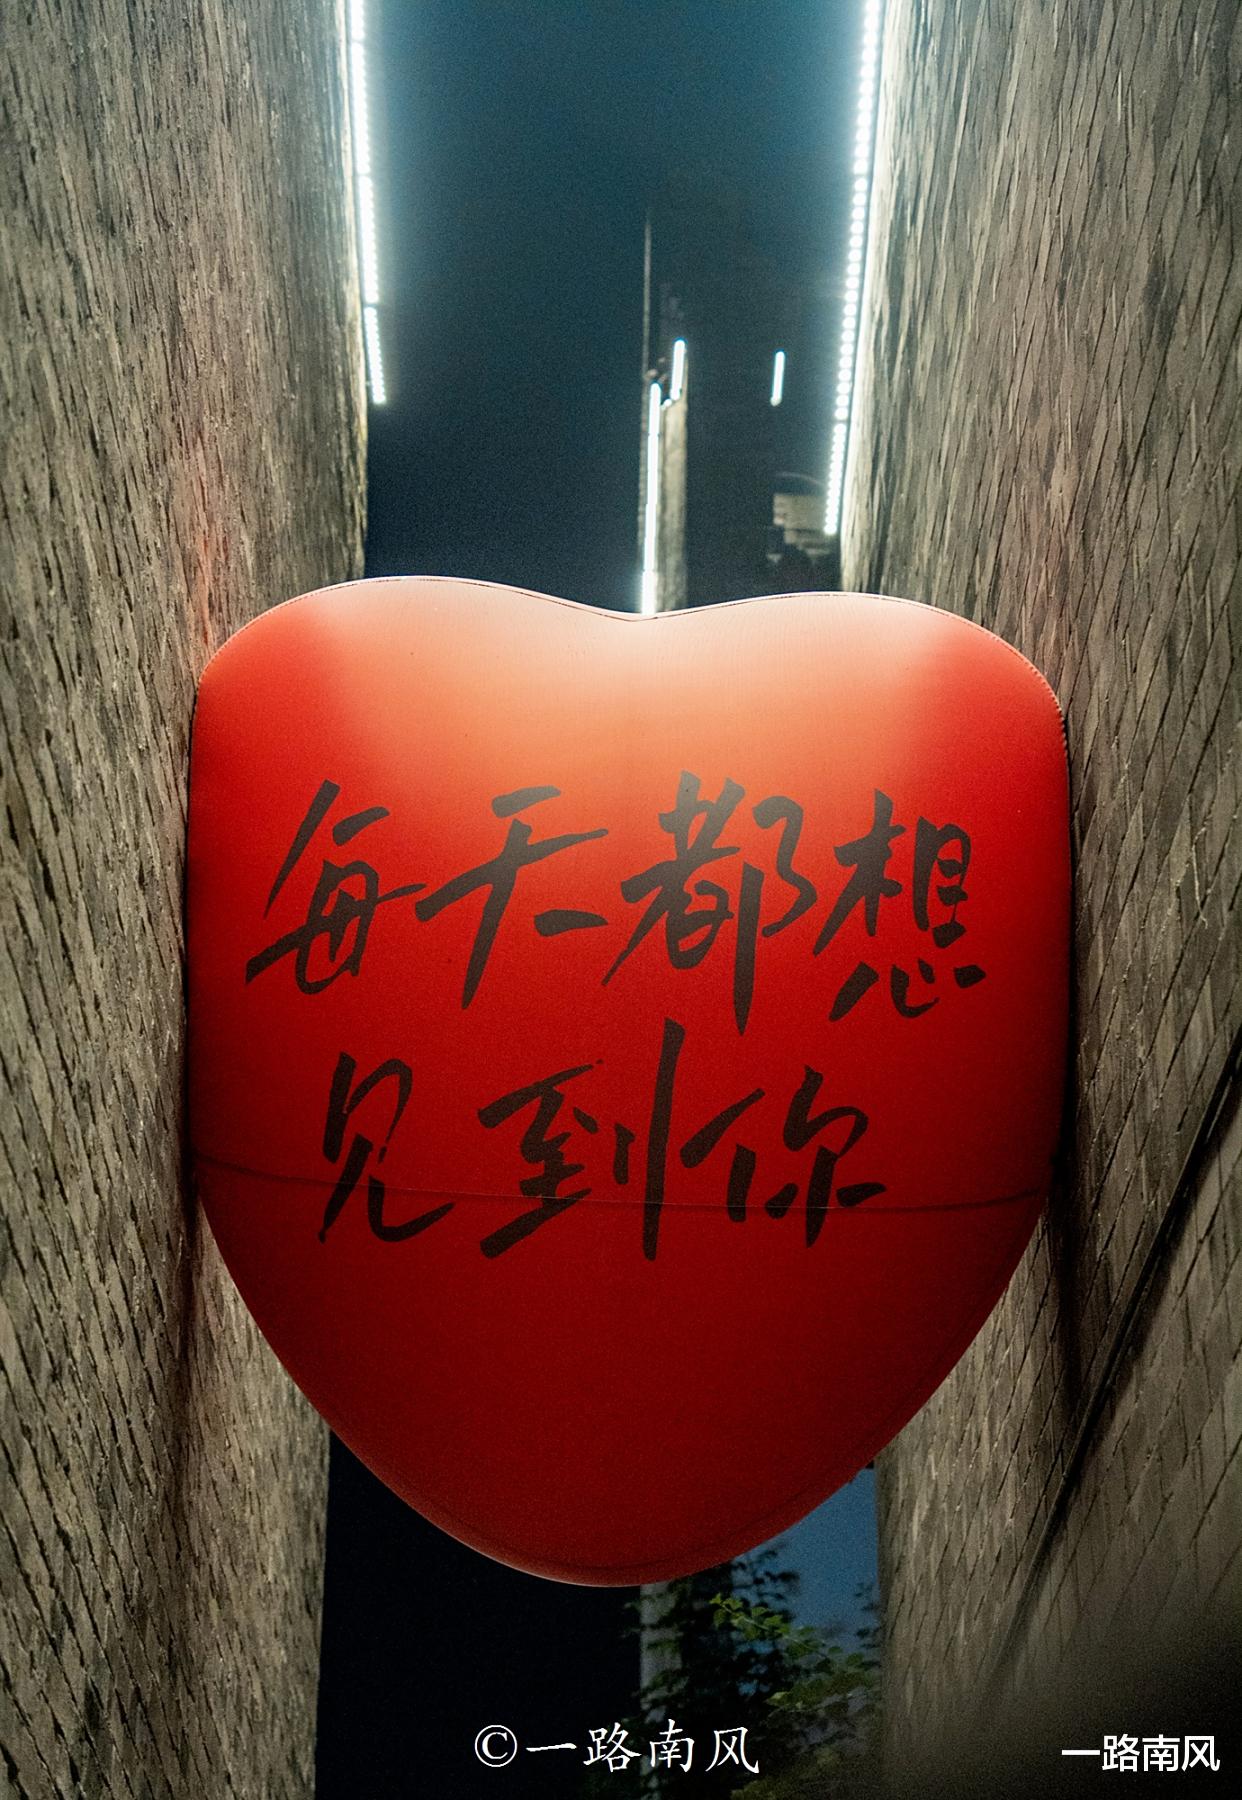 每天都想
见到你
©一路南风
一路南风